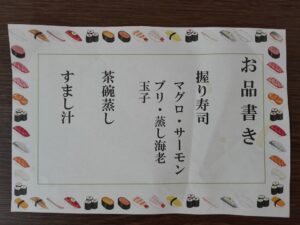 お品書き
握り寿司
マグロ・サーモン
ブリ・蒸し海老
玉子
茶碗蒸し
すまし汁